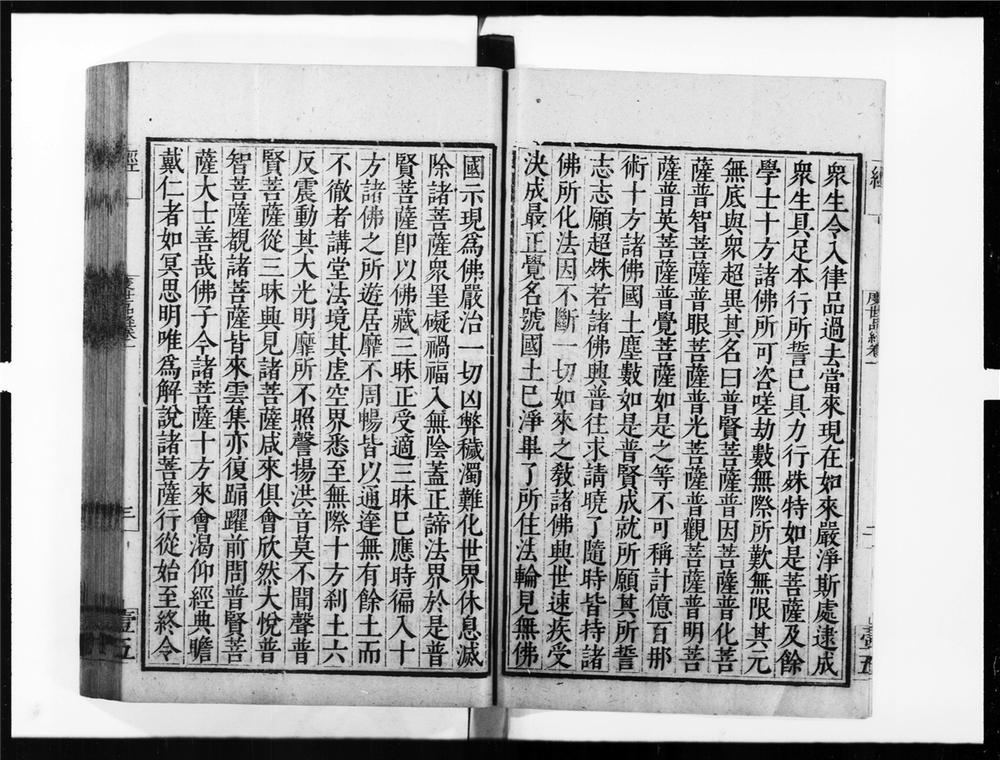 衆生令入律品過去當來現在如來嚴淨斯處逮成
衆生具足本行所誓已具力行殊特如是菩薩及餘
學士十方諸佛所可咨嗟劫數無際所歎無限其元
無底與衆超異其名曰普賢菩薩普因菩薩普化菩
薩普智菩薩普眼菩薩普光菩薩普觀菩薩普明菩
薩普英菩薩普覺菩薩如是之等不可稱計億百那
術十方諸佛國土塵數如是普賢成就所願其所誓
志志願超殊若諸佛興普往求請曉了隨時皆持諸
佛所化法因不斷一切如來之教諸佛興世速疾受
決成最正覺名號國土已淨畢了所住法輪見無佛
國示現爲佛嚴治一切凶弊穢濁難化世界休息滅
除諸菩薩衆罣礙禍福入無陰蓋正諦法界於是普
賢菩薩卽以佛藏三昧正受適三昧已應時徧入十
方諸佛之所遊居靡不周暢皆以通達無有餘土而
不徹者講堂法境其虛空界悉至無際十方剎土六
反震動其大光明靡所不照聲揚洪音莫不聞聲普
賢菩薩從三昧興見諸菩薩咸來俱會欣然大悅普
智菩薩覩諸菩薩皆來雲集亦復踊躍前問普賢菩
薩大士善哉佛子今諸菩薩十方來會渴仰經典瞻
戴仁者如冥思明唯爲解說諸菩薩行從始至終令
經
度世品經卷一
三
壹五